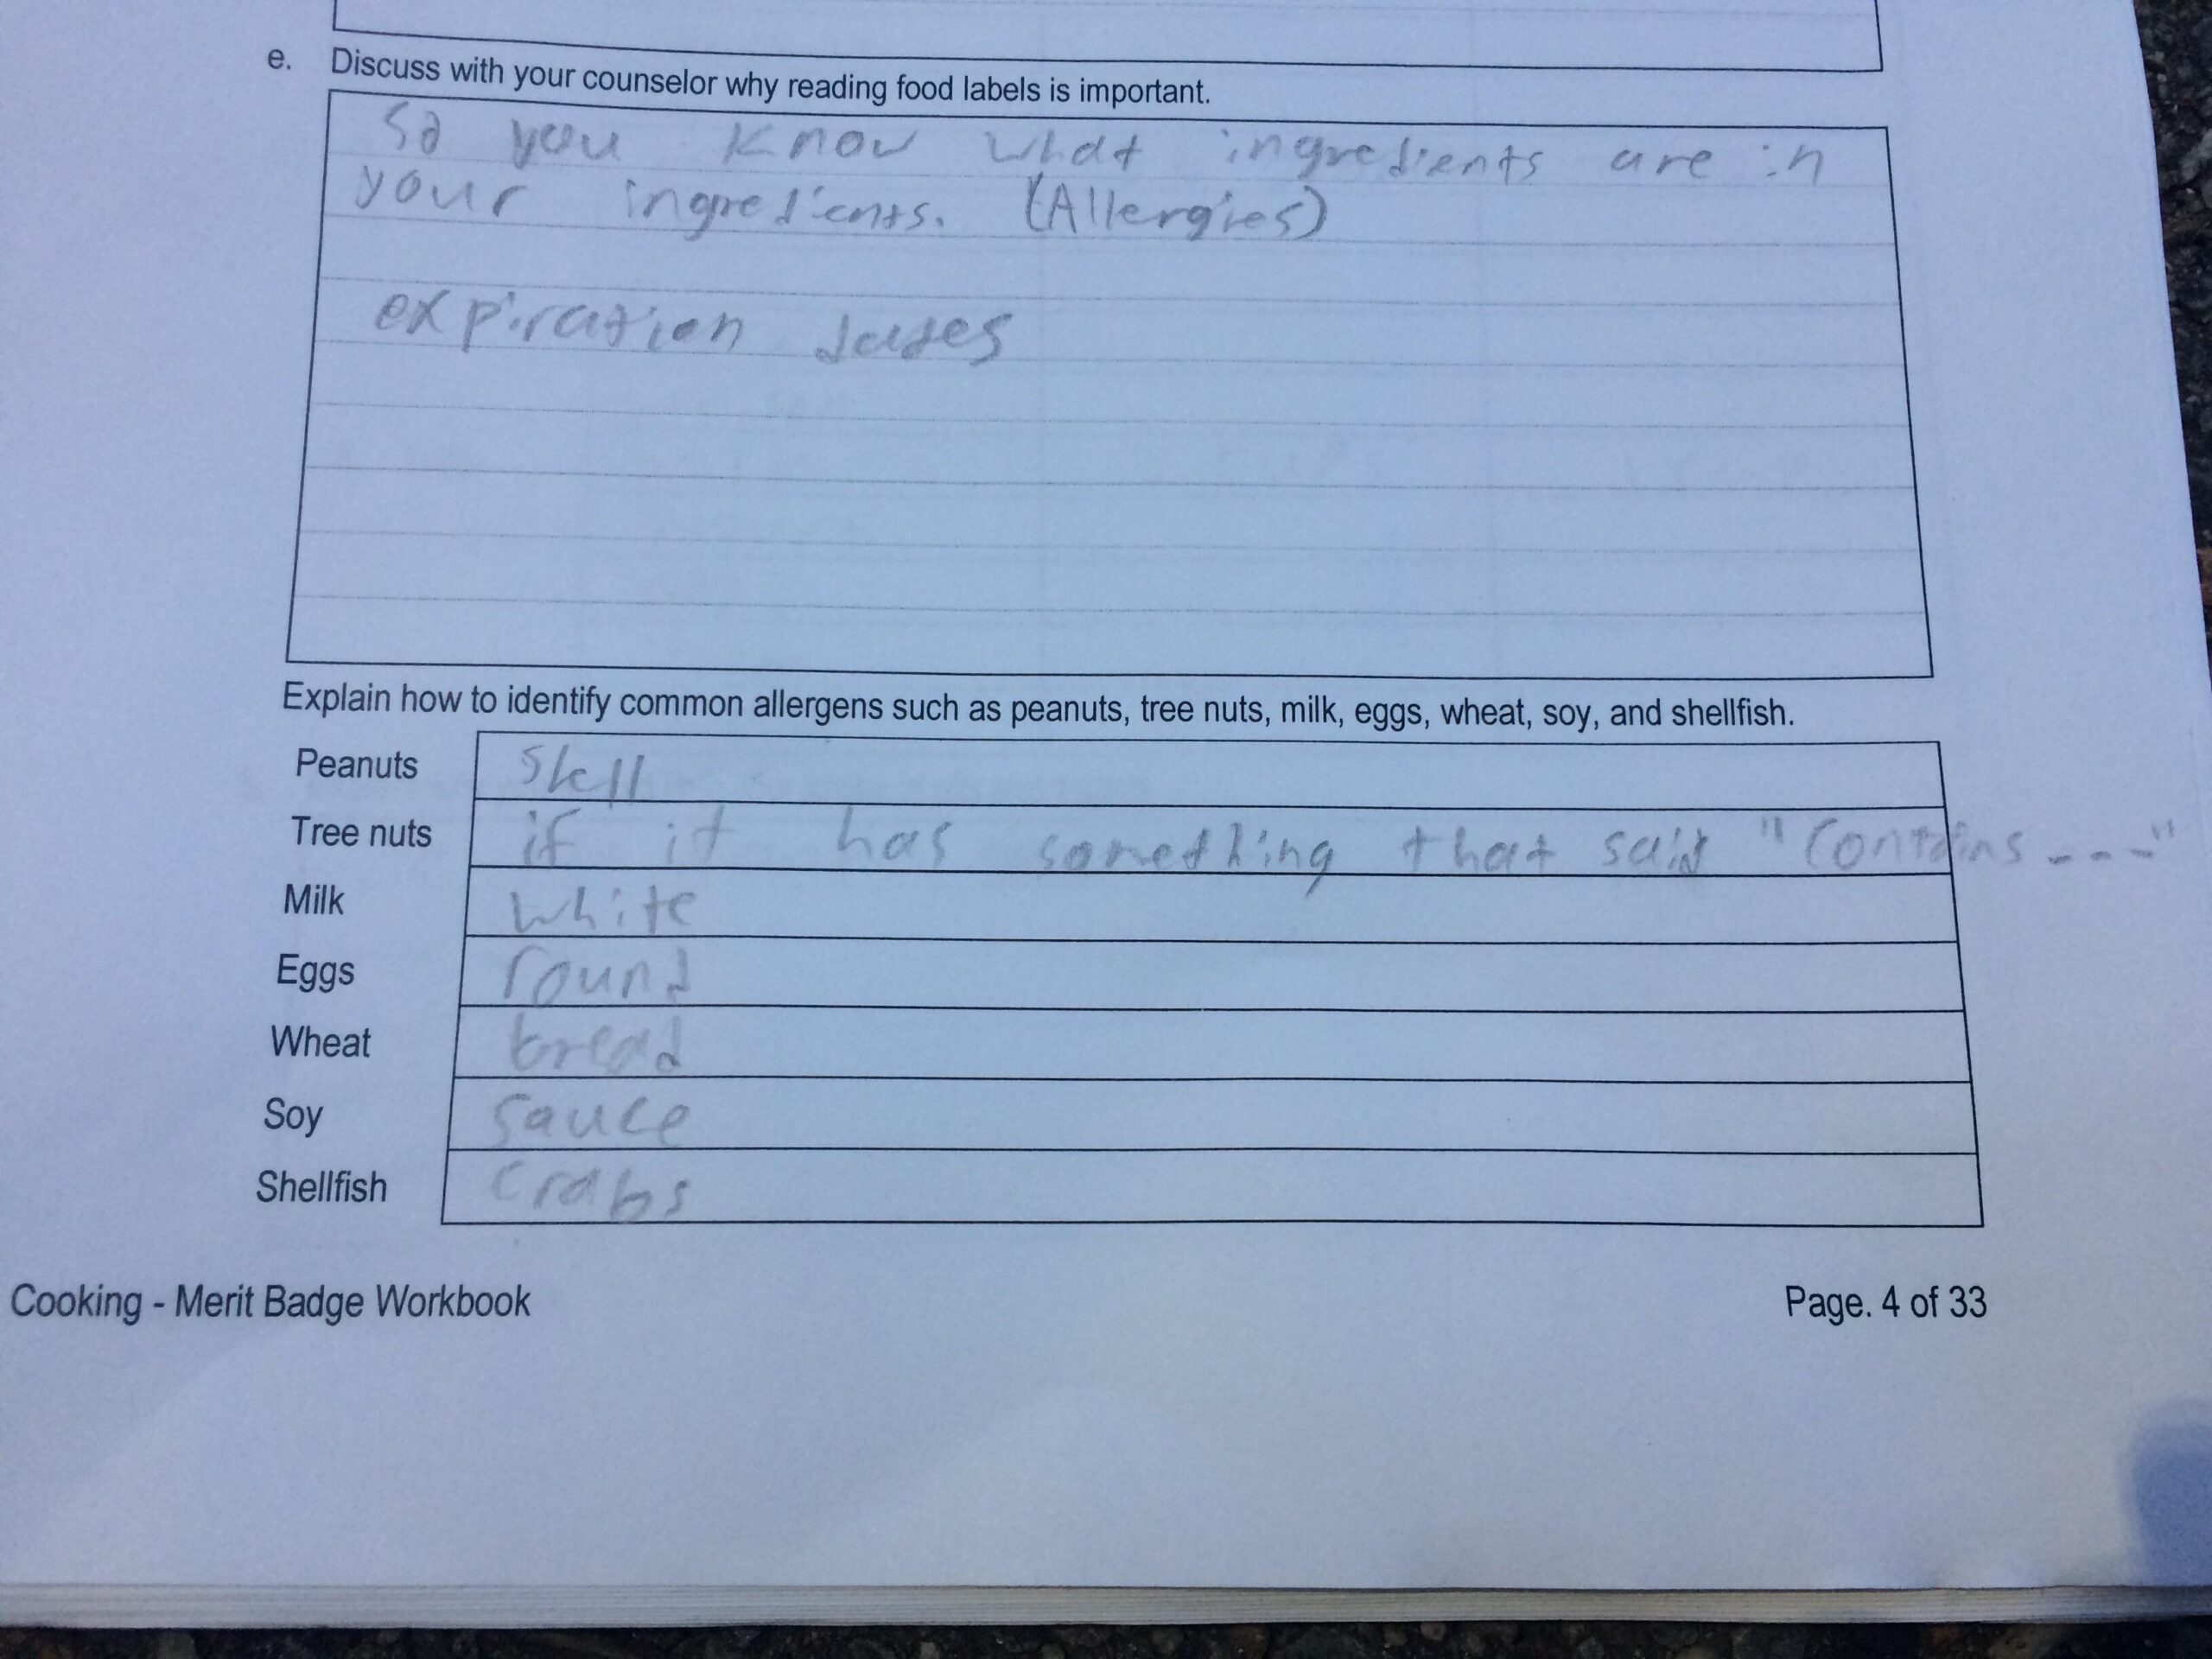 e. Discuss with your counselor why reading food labels is important.
So you know what ingredients are in
your ingredients. (Allergies)
expiration dates
Explain how to identify common allergens such as peanuts, tree nuts, milk, eggs, wheat, soy, and shellfish.
Peanuts shell
Tree nuts if it has something that said "Contains ---"
Milk white
Eggs round
Wheat bread
Soy sauce
Shellfish crabs
Cooking - Merit Badge Workbook Page. 4 of 33